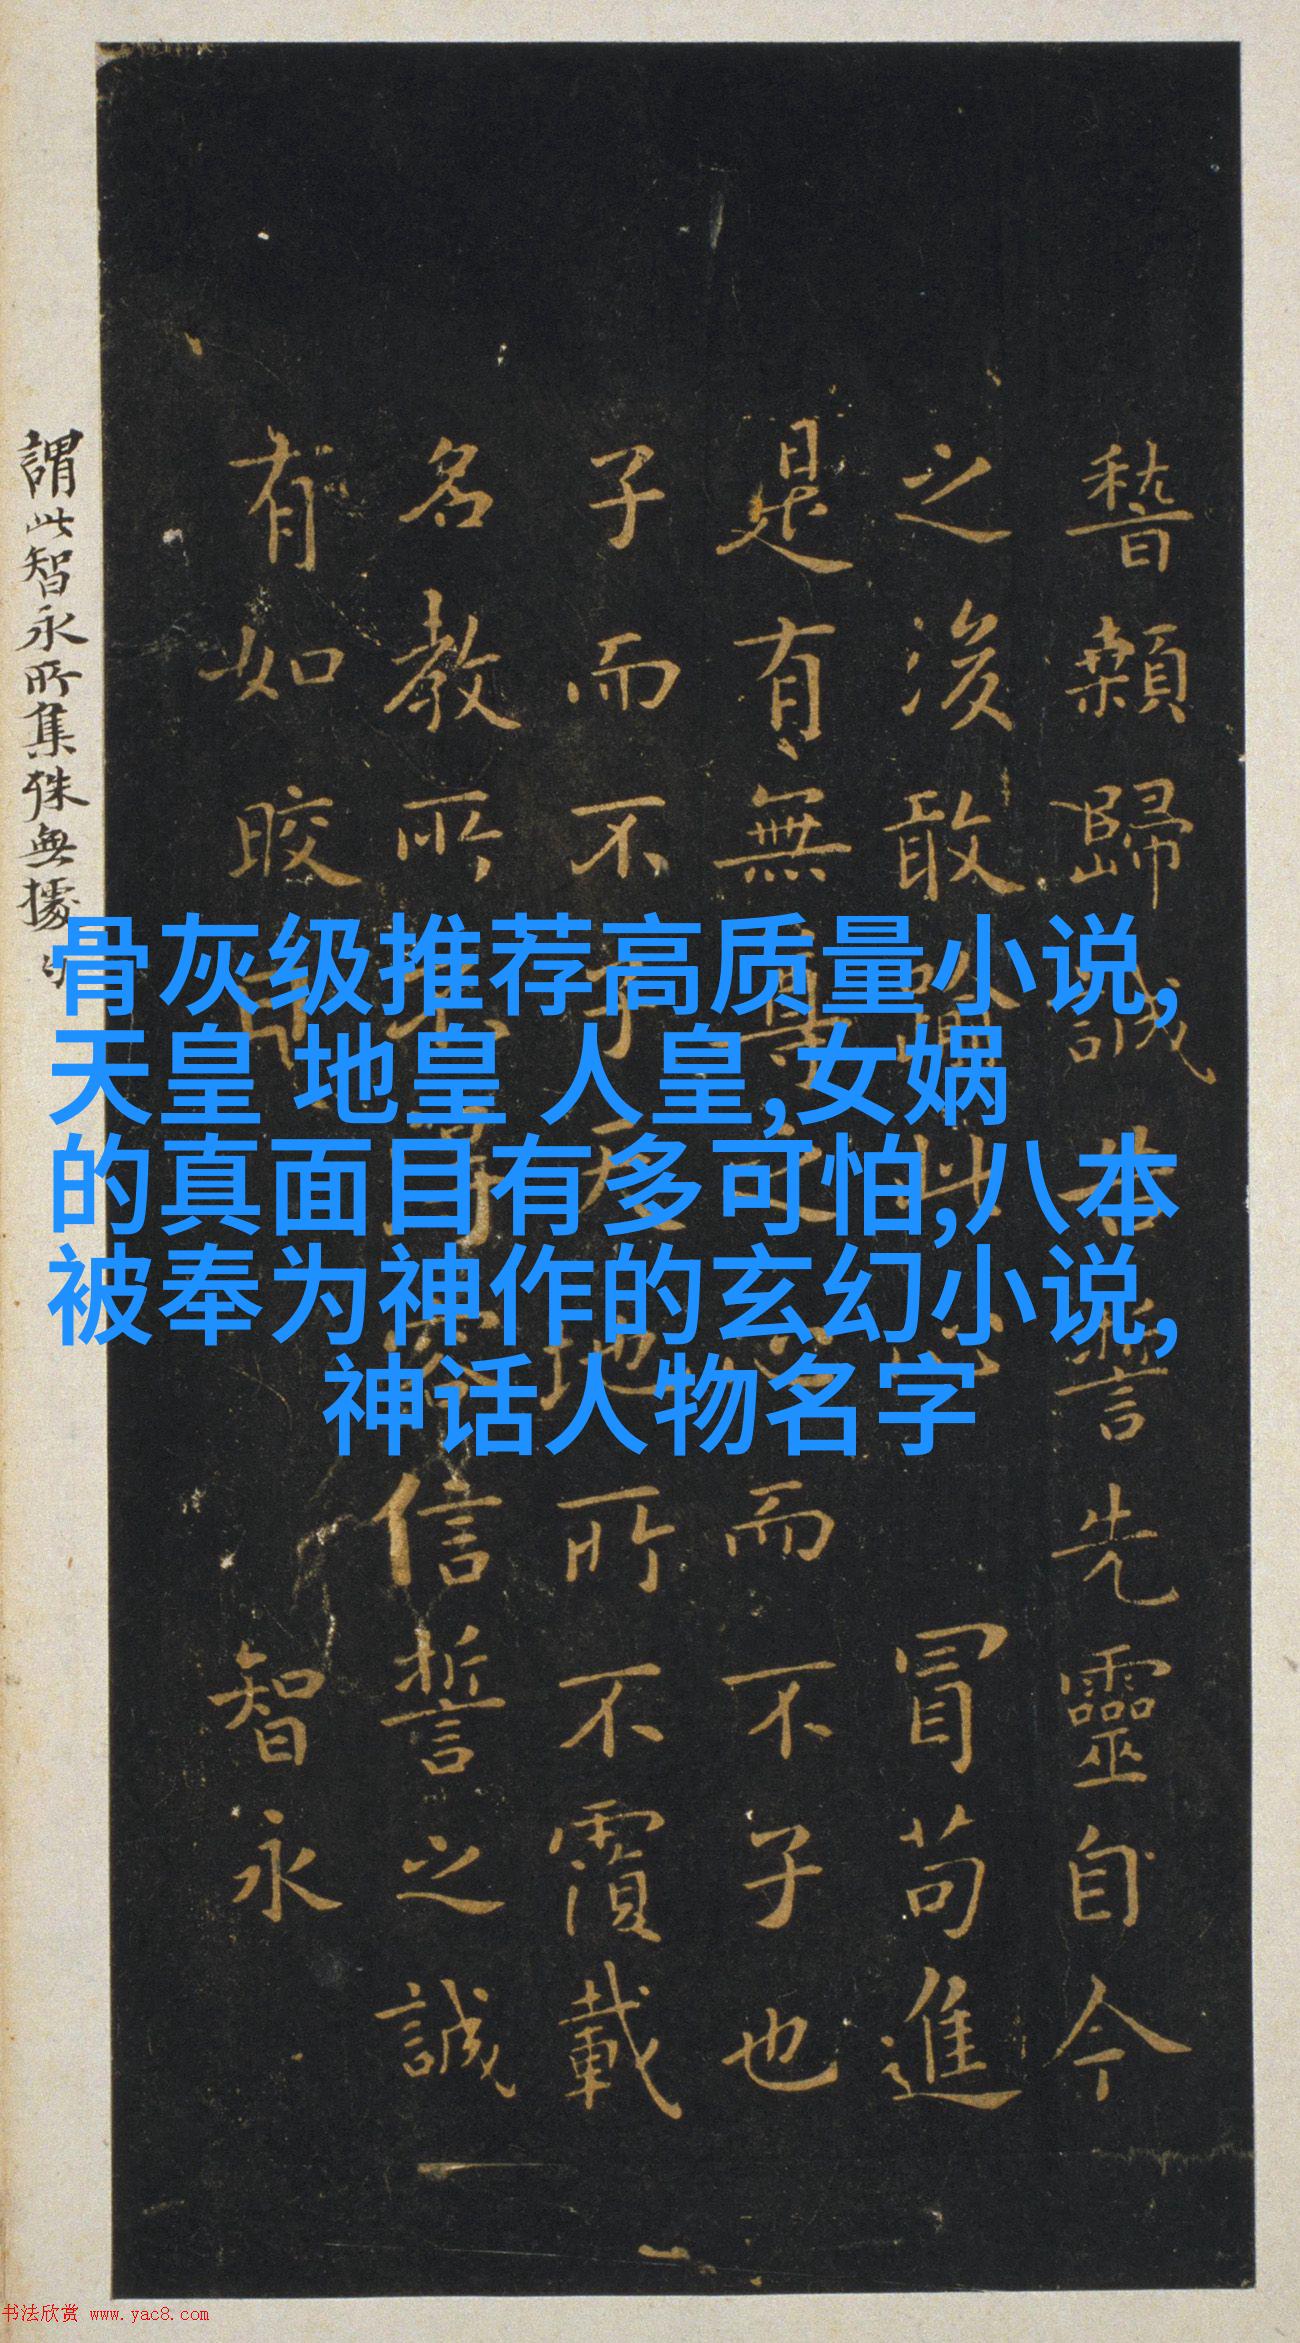 稽顙歸誠告誓先靈自今
之後敢
冒苟進
是有無尊之心而不子也
子而不子天地所不覆載
名教所不得容信誓之誠
有如皎日
智永
謂此智永所集殊無據
骨灰级推荐高质量小说,
天皇 地皇 人皇,女娲
的真面目有多可怕,八本
被奉为神作的玄幻小说,
神话人物名字
书法欣赏 www.yac8.com